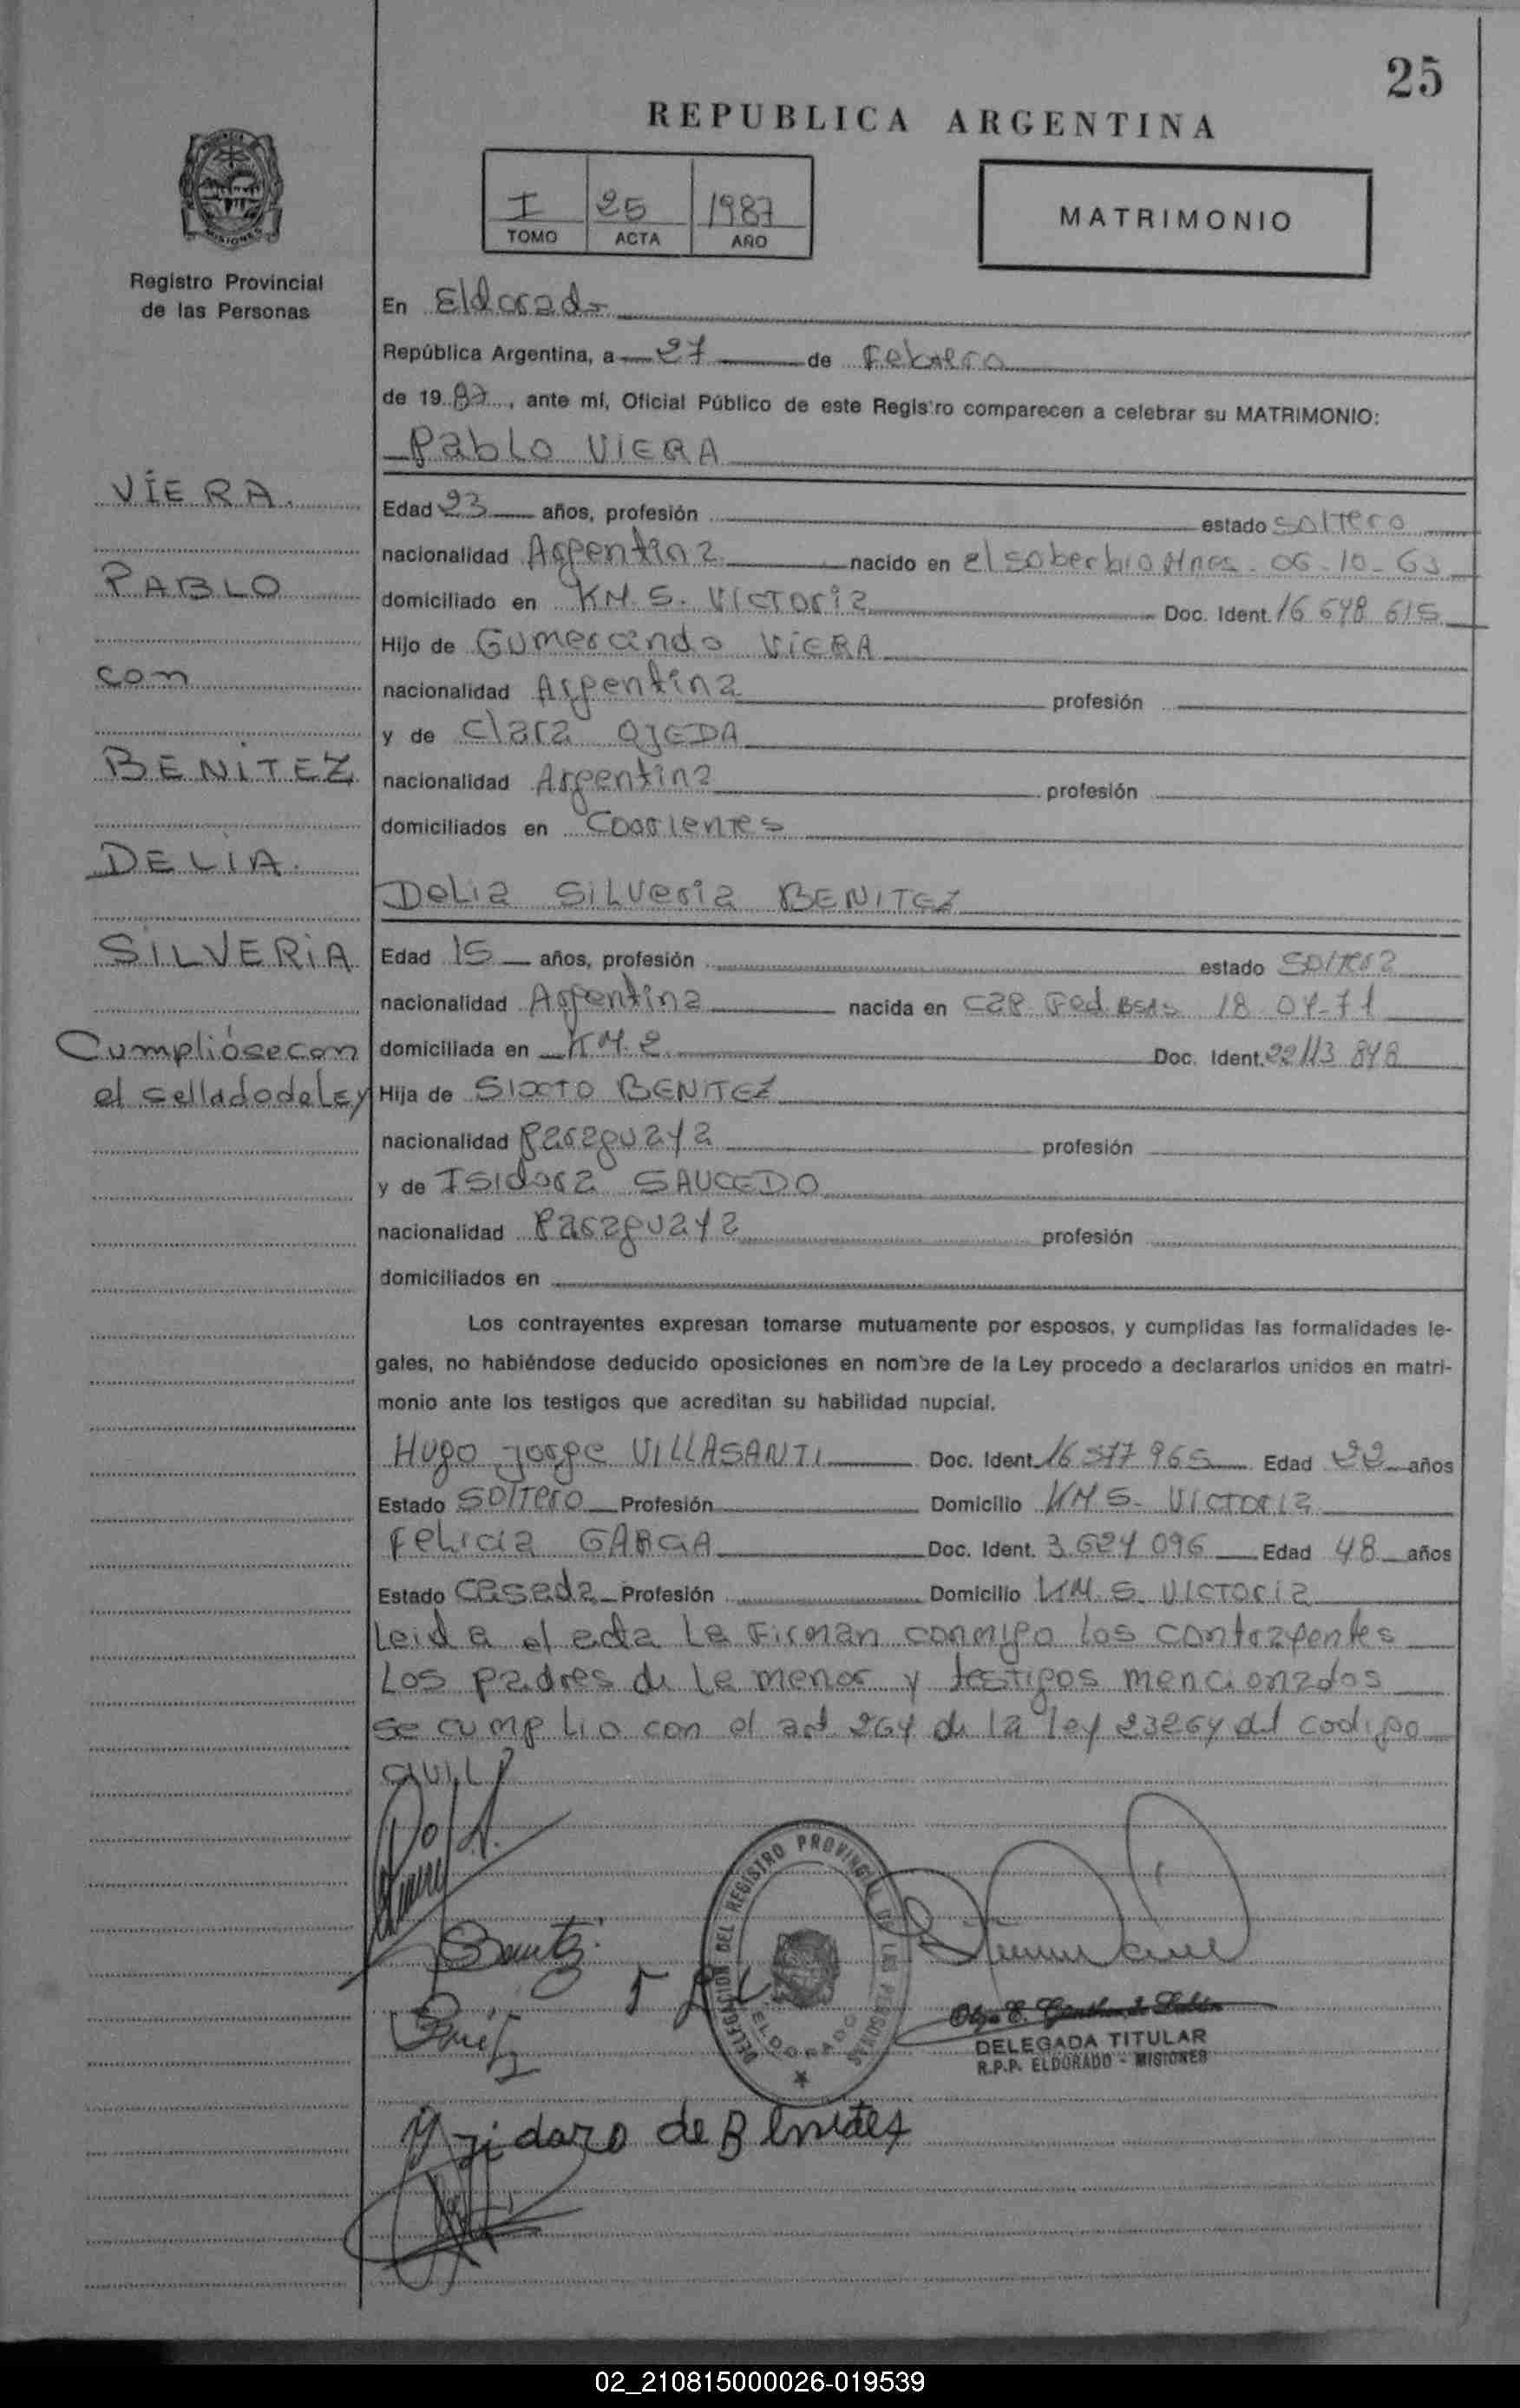 25
REPUBLICA ARGENTINA
I 25 1987
TOMO ACTA AÑO
MATRIMONIO
MISIONES
Registro Provincial
de las Personas
En Eldorado
República Argentina, a 27 de Febrero
de 1987, ante mí, Oficial Público de este Registro comparecen a celebrar su MATRIMONIO:
Pablo VIERA
VIERA.
PABLO
con
BENITEZ
DELIA.
SILVERIA
Cumplióse con
el sellado de Ley
Edad 23 años, profesión estado soltero
nacionalidad Argentina nacido en el soberbio Mnes. 06-10-63
domiciliado en KM. 5. Victoria Doc. Ident. 16 648 615
Hijo de Gumercindo VIERA
nacionalidad Argentina profesión
y de Clara OJEDA
nacionalidad Argentina profesión
domiciliados en Corrientes
Delia Silveria BENITEZ
Edad 15 años, profesión estado soltera
nacionalidad Argentina nacida en Cap. Fed. BsAs 18-04-71
domiciliada en KM. 2 Doc. Ident. 22 113 848
Hija de Sixto BENITEZ
nacionalidad Paraguaya profesión
y de Isidora SAUCEDO
nacionalidad Paraguaya profesión
domiciliados en
Los contrayentes expresan tomarse mutuamente por esposos, y cumplidas las formalidades le-
gales, no habiéndose deducido oposiciones en nombre de la Ley procedo a declararlos unidos en matri-
monio ante los testigos que acreditan su habilidad nupcial.
Hugo Jorge VILLASANTI Doc. Ident. 16 377 965 Edad 22 años
Estado Soltero Profesión Domicilio KM 5. Victoria
Felicia GARCIA Doc. Ident. 3.624 096 Edad 48 años
Estado Casada Profesión Domicilio KM. 5. Victoria
Leida el acta la Firman conmigo los contrayentes
Los padres de la menor y testigos mencionados
se cumplio con el art 264 de la ley 23264 del codigo
civil
DELEGACION DEL REGISTRO PROVINCIAL DE LAS PERSONAS
ELDORADO
Benitz
DELEGADA TITULAR
R.P.P. ELDORADO - MISIONES
Yzidaro de Benites
02_210815000026-019539